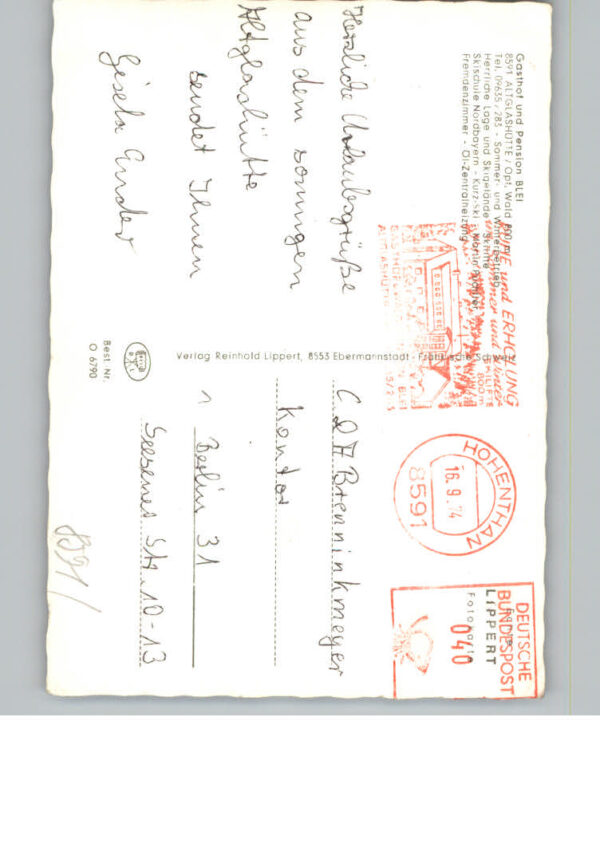 Gasthof und Pension BLEI
8591 ALTGLASHÜTTE / Opf. Wald 800 m
Tel. 09635 / 283 - Sommer- und Winterbetrieb
Herrliche Lage und Skigelände - Skilifte
Skischule Nordbayern - Kurz-Ski
Fremdenzimmer - Öl-Zentralheizung
Herzliche Urlaubsgrüße
aus dem sonnigen
Altglashütte
sendet Ihnen
Gisela Ender
Verlag Reinhold Lippert, 8553 Ebermannstadt - Fränkische Schweiz
Best. Nr.
O 6790
und ERHOLUNG
Sommer und Winter
SKILIFTE
800 m
ALTGLASHÜTTE
BLEI
HOHENTHAN
16.9.74
8591
DEUTSCHE
BUNDESPOST
LIPPERT
040
C & A Brenninkmeyer
Kontor
1 Berlin 31
Seesener Str. 10-13
8591/